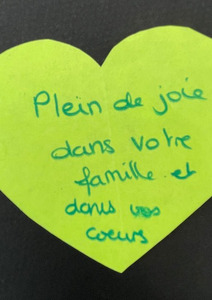 Plein de joie
dans votre
famille et
dans vos
coeurs